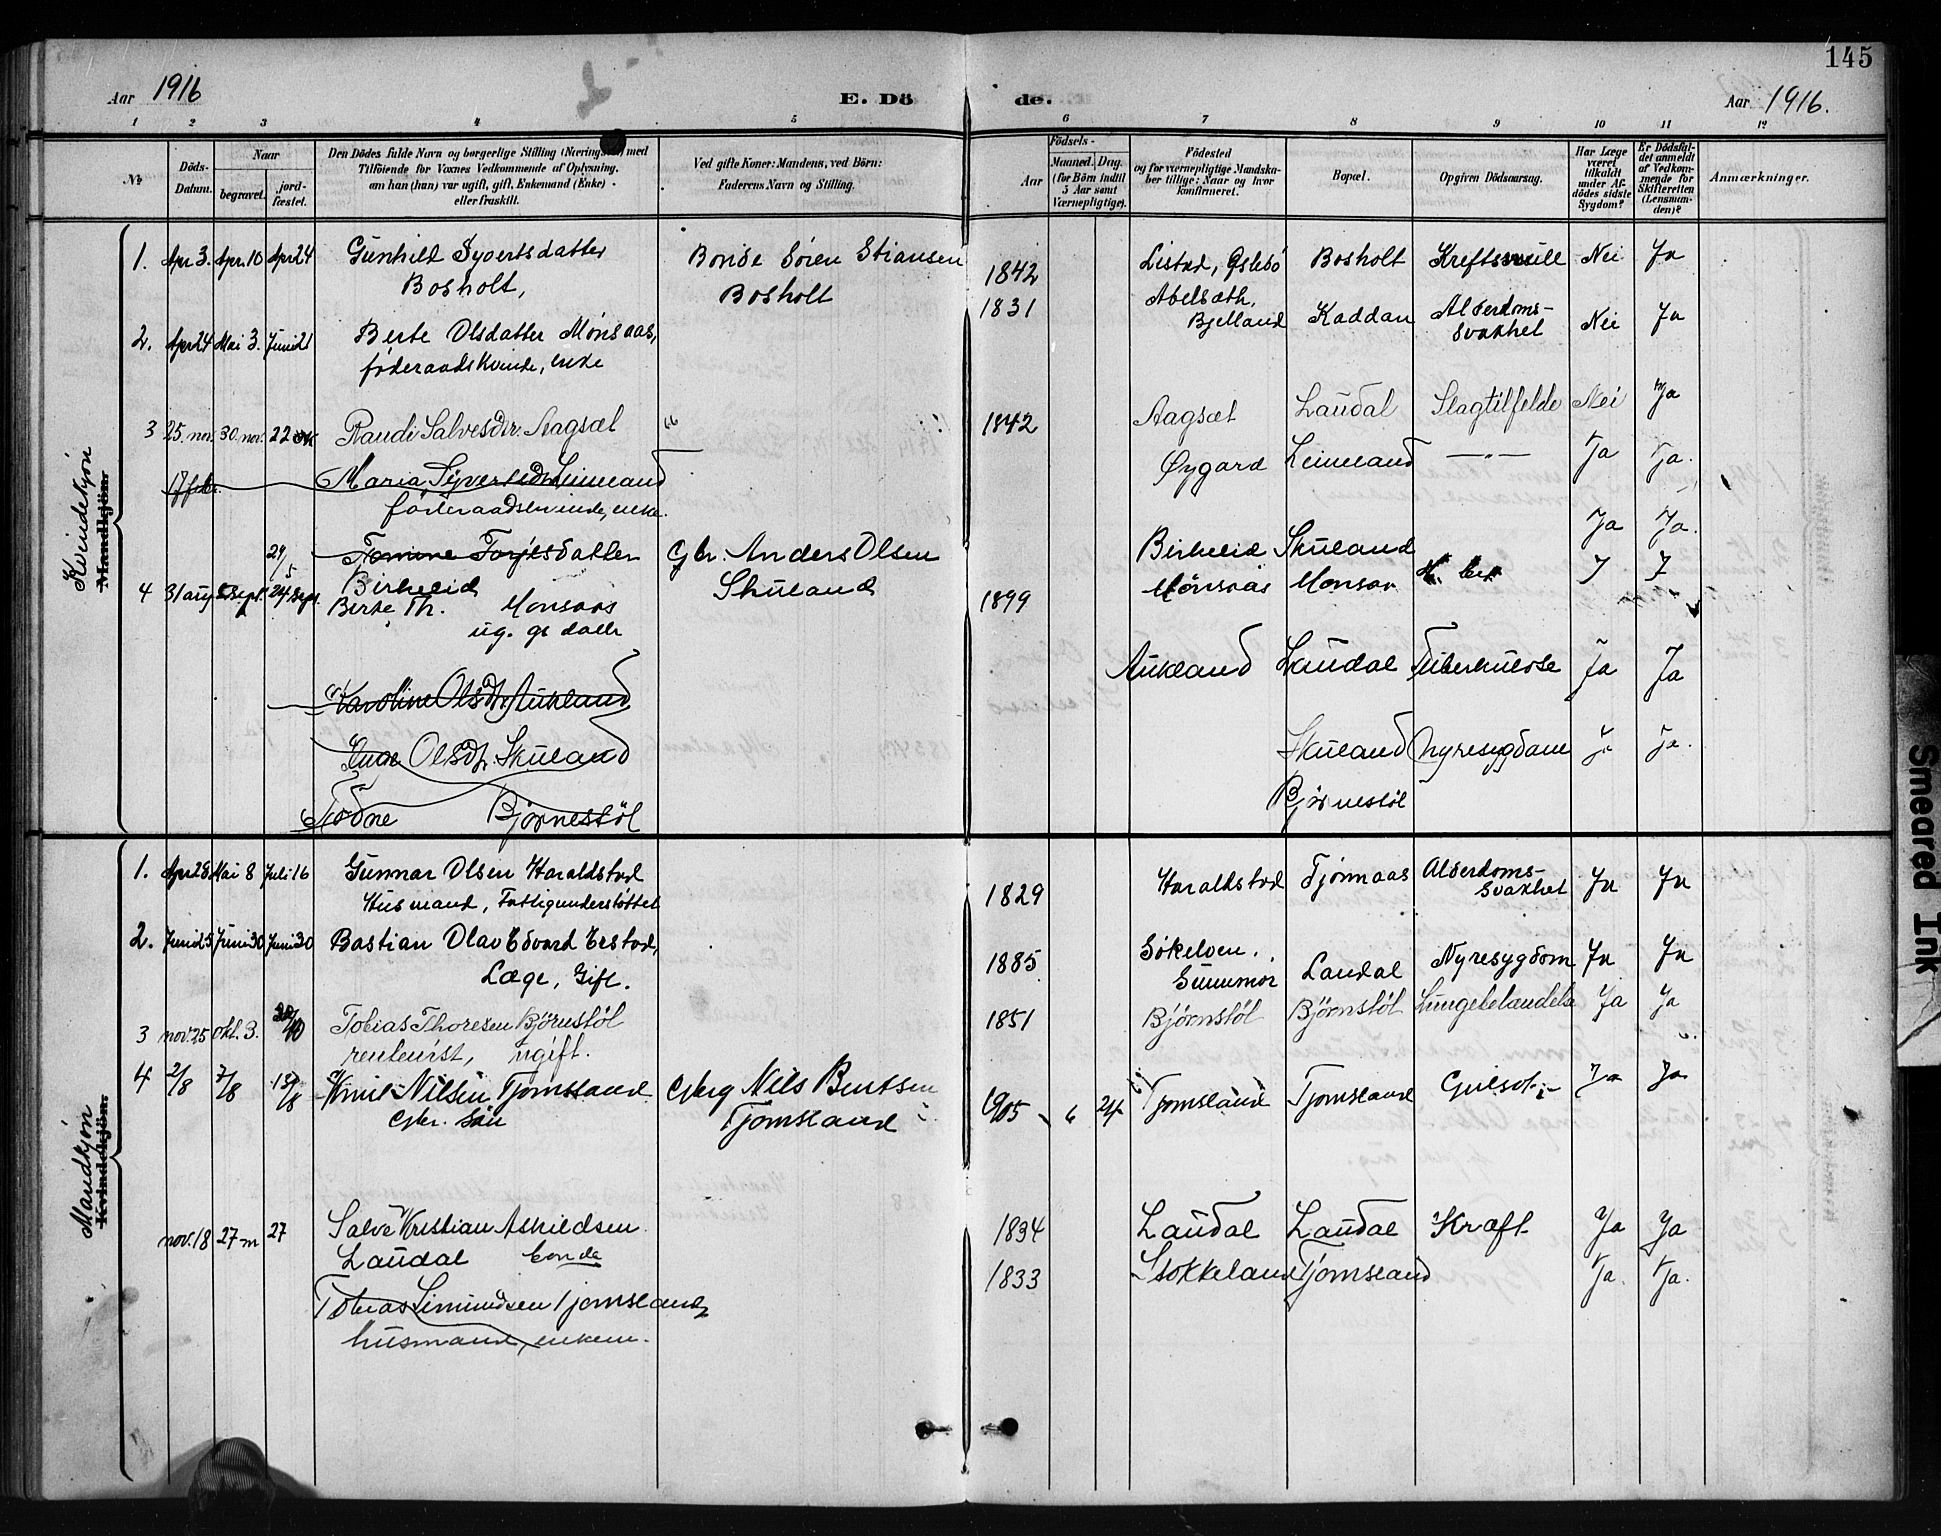 145
Aar 1916
E. Dö
de.
Aar 1916.
1 2 3 4 5 6 7 8 9 10 11 12
№
Döds-Datum.
Naar
begravet.
jord-fæstet.
Den Dödes fulde Navn og borgerlige Stilling (Næringsvei) med
Tilföiende for Voxnes Vedkommende af Oplysning,
om han (hun) var ugift, gift, Enkemand (Enke)
eller fraskilt.
Ved gifte Koner: Mandens, ved Börn:
Faderens Navn og Stilling.
Födsels-
Aar
Maaned. Dag.
(for Börn indtil 5 Aar samt Værnepligtige).
Födested
og for værnepligtige Mandskaber tillige: Naar og hvor konfirmeret.
Bopæl.
Opgiven Dödsaarsag.
Har Læge været tilkaldt under Afdödes sidste Sygdom?
Er Dödsfaldet anmeldt af Vedkommende for Skifteretten (Lensmanden)?
Anmærkninger.
Kvindekjön
Mandkjön.
1. Apr 3. Apr. 10 Apr 24 Gunhild Syvertsdatter Bonde Sören Stiansen 1842 Listad, Öslebö Bosholt Kreftsvulst Nei Ja
Bosholt, Bosholt
2. Apr 24 Mai 3. Juni 21 Berte Olsdatter Mönsaas, 1831 Abelsæth, Bjelland Kaddan Alderdoms-svakhet Nei Ja
föderaadskvinde, enke
3 25. nov. 30. nov. 22 Randi Salvesdtr. Aagsæt 1842 Aagsæt Laudal Slagtilfelde Nei Ja
17 febr. Maria Syvertsdtr Leimeland Øygard Leimeland —"— Ja Ja.
föderaadskvinde, enke.
29/5 Tomine Torjesdatter Gbr. Anders Olsen Birkeid Skuland Ja Ja.
Birkeid Skuland
4 31 aug 8 sept. 24 sept. Berte Th. Monsaas 1899 Mönsaas Monsaas J J
ug. gs datter
Karoline Olsdtr. Aukland Aukland Laudal Tuberkulose Ja Ja
Inge Olsdtr. Skuland Skuland nyresygdom Ja Ja.
Todne Bjørnestöl Bjørnestöl
Mandkjön
Kvindekjön.
1. Apr 28 Mai 8 Juli 16 Gunnar Olsen Haraldstad 1829 Haraldstad Tjönnaas Alderdoms-svakhet Ja Ja
Husmand, Fattigunderstöttet
2. Juni 25 Juni 30 Juni 30 Bastian Olav Edvard Erstad, 1885 Sökelven. Sunnmör Laudal Nyresygdom Ja Ja
Læge, Gift.
3 nov. 25 okt. 3. Tobias Thoresen Björnstöl 1851 Björnstöl Björnstöl Lungebetændelse Ja Ja
rentenist, ugift.
4 2/8 7/8 13/8 Knut Nilsen Tjomsland Gbrg Nils Berntsen 1905 6 24 Tjomsland Tjomsland Gulsot Ja Ja
Gbr. sön Tjomsland
nov. 18 27 27 Salve Kristian Askildsen 1834 Laudal Laudal Kræft Ja Ja
Laudal bonde
Tobias Simundsen Tjomsland 1833 Stokkeland Tjomsland Ja. Ja.
husmand, enkem.
Smeared Ink